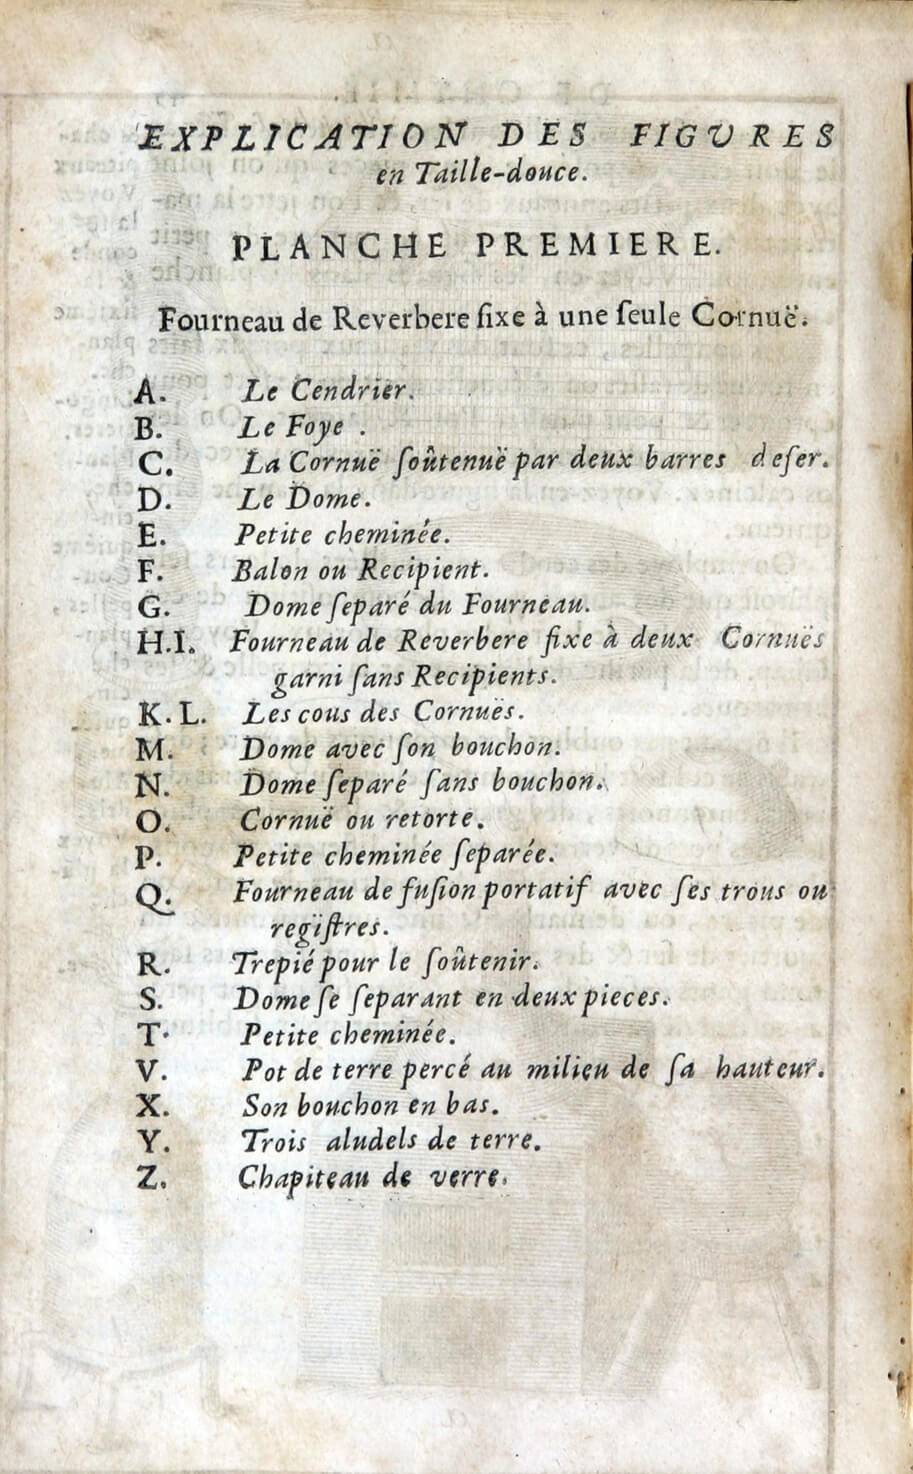 EXPLICATION DES FIGVRES
en Taille-douce.
PLANCHE PREMIERE.
Fourneau de Reverbere fixe à une ſeule Cornuë.
A. Le Cendrier.
B. Le Foye .
C. La Cornuë ſoûtenuë par deux barres deſer.
D. Le Dome.
E. Petite cheminée.
F. Balon ou Recipient.
G. Dome ſeparé du Fourneau.
H.I. Fourneau de Reverbere fixe à deux Cornuës
garni ſans Recipients.
K. L. Les cous des Cornuës.
M. Dome avec ſon bouchon.
N. Dome ſeparé ſans bouchon.
O. Cornuë ou retorte.
P. Petite cheminée ſeparée.
Q. Fourneau de fuſion portatif avec ſes trous ou
regiſtres.
R. Trepié pour le ſoûtenir.
S. Dome ſe ſeparant en deux pieces.
T. Petite cheminée.
V. Pot de terre percé au milieu de ſa hauteur.
X. Son bouchon en bas.
Y. Trois aludels de terre.
Z. Chapiteau de verre.